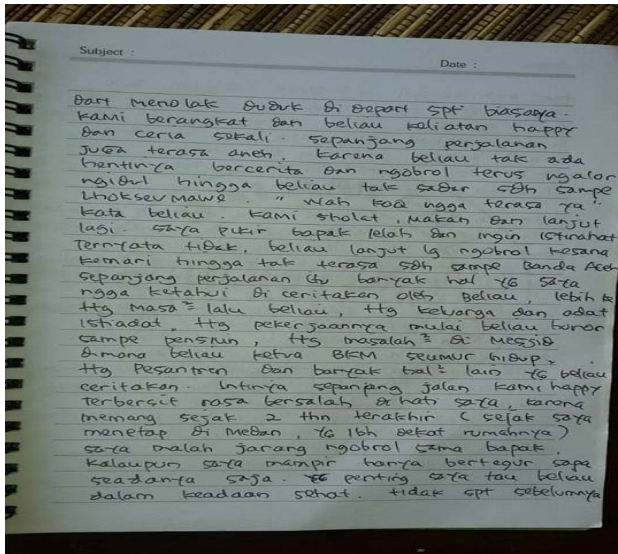 Subject :
Date :
dari menolak duduk di depart spt biasanya.
Kami berangkat dan beliau keliatan happy
dan ceria sekali. sepanjang perjalanan
juga terasa aneh, karena beliau tak ada
hentinya bercerita dan ngobrol terus ngalor
ngidul hingga beliau tak sadar sdh sampe
Lhokseumawe. "Wah koq ngga terasa ya"
kata beliau. Kami sholat, makan dan lanjut
lagi. saya pikir bapak lelah dan ingin istirahat
Ternyata tidak, beliau lanjut lg ngobrol kesana
kemari hingga tak terasa sdh sampe Banda Aceh
sepanjang perjalanan itu banyak hal yg saya
ngga ketahui di ceritakan oleh beliau, lebih ke
ttg masa² lalu beliau, ttg keluarga dan adat
istiadat, ttg pekerjaannya mulai beliau honor
sampe pensiun, ttg masalah² di messjid
dimana beliau ketua BKM seumur hidup,
ttg Pesantren dan banyak hal² lain yg beliau
ceritakan. Intinya sepanjang jalan kami happy
terbersit rasa bersalah di hati saya, karena
memang sejak 2 thn terakhir (sejak saya
menetap di medan, yg lbh dekat rumahnya)
saya malah jarang ngobrol sama bapak,
kalaupun saya mampir hanya bertegur sapa
seadanya saja. yg penting saya tau beliau
dalam keadaan sehat. tidak spt sebelumnya